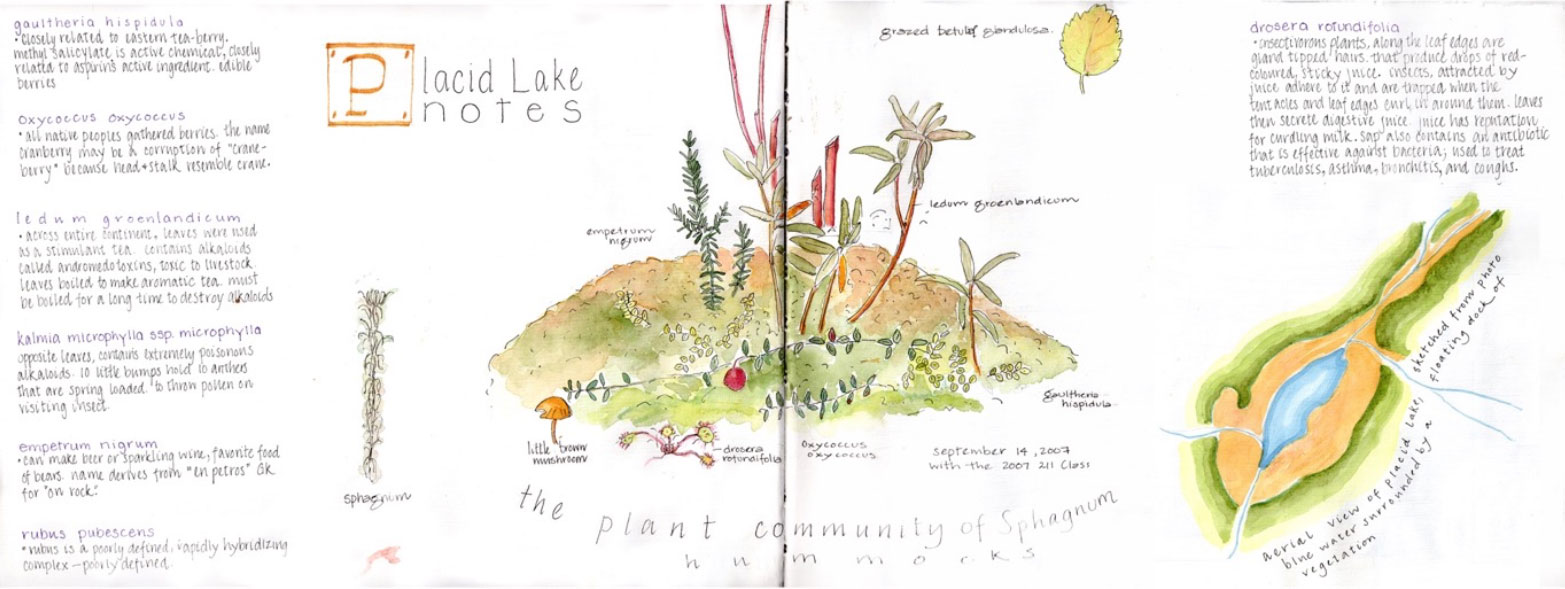 gaultheria hispidula
• closely related to eastern tea-berry.
methyl salicylate is active chemical, closely
related to aspirin's active ingredient. edible
berries
oxycoccus oxycoccus
• all native peoples gathered berries. the name
cranberry may be a corruption of "crane-
berry" because head + stalk resemble crane.
ledum groenlandicum
• across entire continent, leaves were used
as a stimulant tea. contains alkaloids
called andromedotoxins, toxic to livestock.
leaves boiled to make aromatic tea. must
be boiled for a long time to destroy alkaloids
kalmia microphylla ssp. microphylla
opposite leaves, contains extremely poisonous
alkaloids. 10 little bumps hold 10 anthers
that are spring loaded. to throw pollen on
visiting insect.
empetrum nigrum
• can make beer or sparkling wine, favorite food
of bears. name derives from "en petros" GK
for "on rock".
rubus pubescens
• rubus is a poorly defined, rapidly hybridizing
complex – poorly defined.
Placid Lake
notes
sphagnum
grazed betula glandulosa.
empetrum
nigrum
ledum groenlandicum
gaultheria
hispidula
little brown
mushroom
drosera
rotundifolia
oxycoccus
oxycoccus
september 14, 2007
with the 2007 211 class
the plant community of Sphagnum
hummocks
drosera rotundifolia
• insectivorous plants, along the leaf edges are
gland tipped hairs. that produce drops of red-
coloured, sticky juice. insects, attracted by
juice adhere to it and are trapped when the
tentacles and leaf edges curl in around them. leaves
then secrete digestive juice. juice has reputation
for curdling milk. sap also contains an antibiotic
that is effective against bacteria; used to treat
tuberculosis, asthma, bronchitis, and coughs.
aerial view of placid lake,
blue water surrounded by a
vegetation
sketched from photo
floating dock of